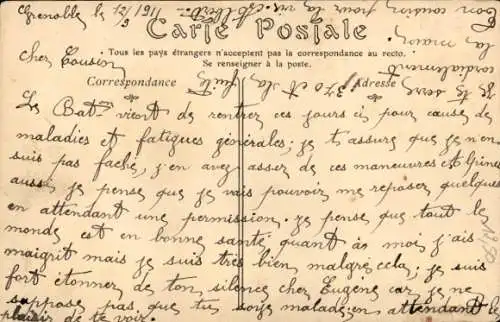 Grenoble le 12/9 1911
Carte Postale
Tous les pays étrangers n'acceptent pas la correspondance au recto.
Se renseigner à la poste.
Correspondance
Adresse
Cher Cousin
Le Bat^on vient de rentrer ces jours ci pour cause de
maladies et fatigues générales; je t'assure que je n'en
suis pas faché, j'en avez assez de ces manœuvres Alpines
aussi je pense que je vais pouvoir me reposer quelque
en attendant une permission. je pense que tout le
monde est en bonne santé, quant à moi j'ais
maigrit mais je suis très bien malgré cela; je suis
fort étonner de ton silence chez Eugene car je ne
suppose pas que tu sois malade; en attendant le
plaisir de te voir.
je te serre
cordialement
la main
Ton cousin pour la vie